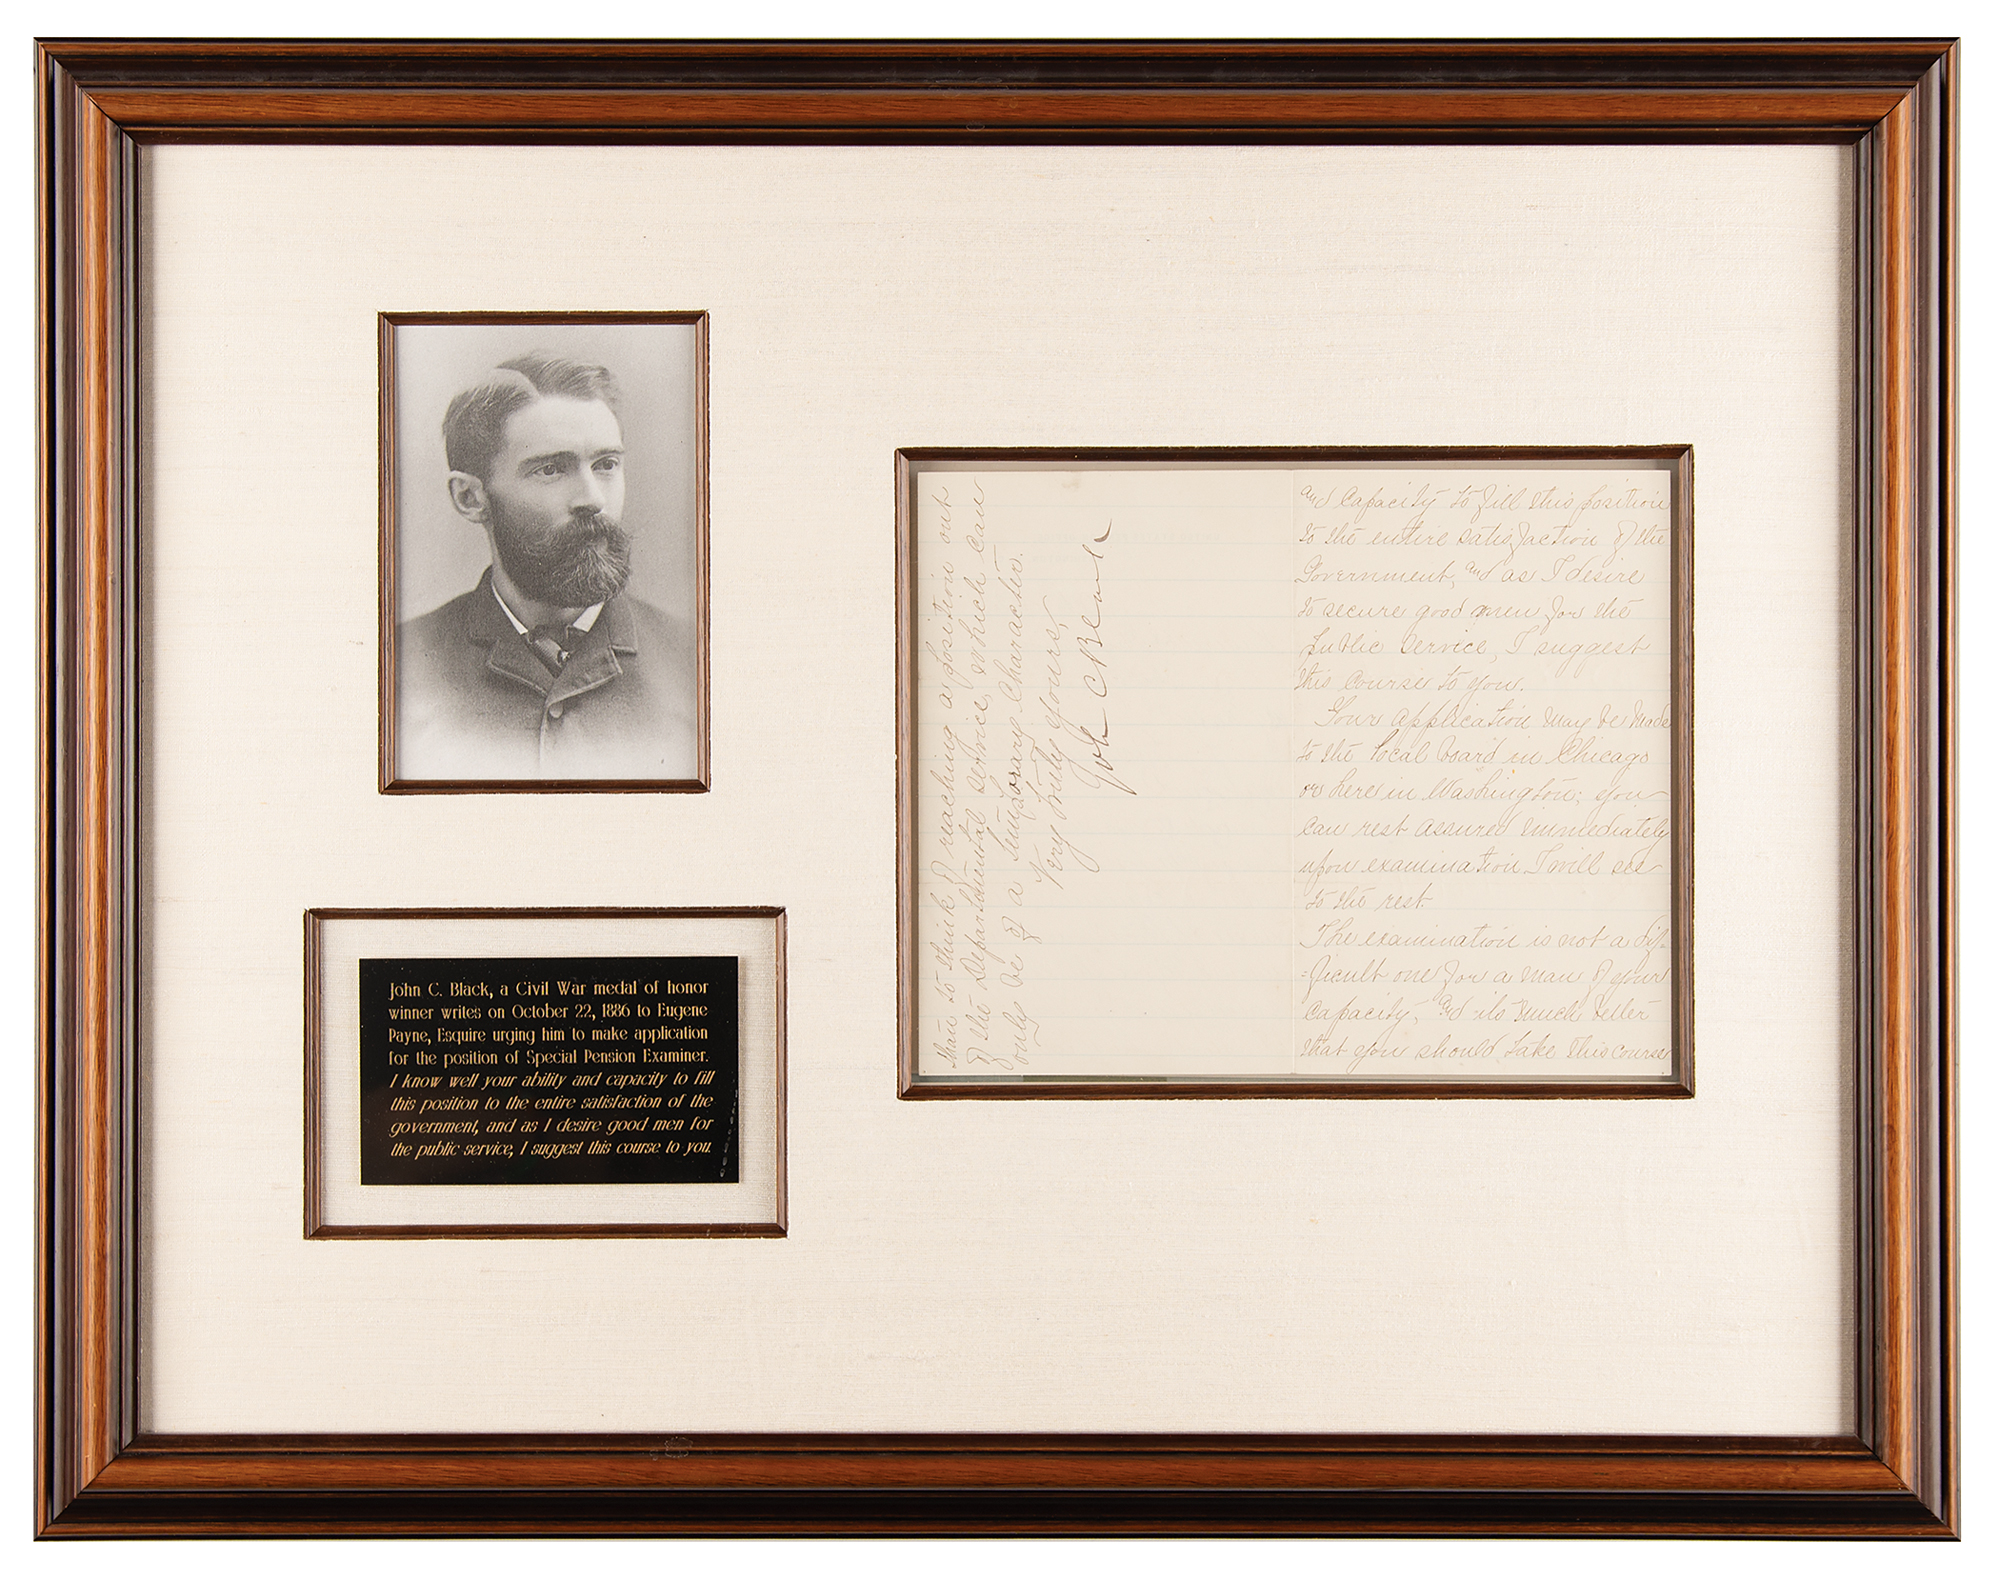 John C. Black, a Civil War medal of honor
winner writes on October 22, 1886 to Eugene
Payne, Esquire urging him to make application
for the position of Special Pension Examiner.
I know well your ability and capacity to fill
this position to the entire satisfaction of the
government, and as I desire good men for
the public service, I suggest this course to you.
and Capacity to fill this position
to the entire satisfaction of the
Government, and as I desire
to secure good men for the
public service, I suggest
this course to you.
Your application may be made
to the local board in Chicago
or here in Washington; you
can rest assured immediately
upon examination I will see
to the rest.
The examination is not a dif-
=ficult one for a man of your
capacity, and its much better
that you should take this course
than to think of reaching a position out
of the Departmental service, which can
only be of a temporary character.
Very truly yours,
John C Black